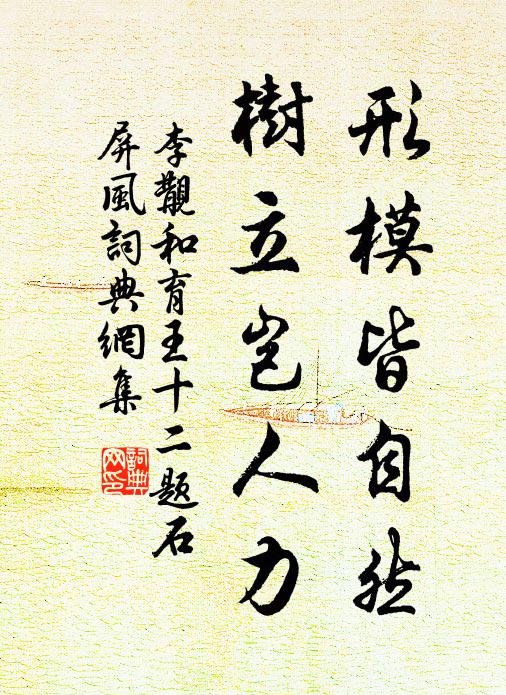 形模皆自然
樹立岂人力
李觀和育王十二题石
屏風詞典網集
詞典
网印